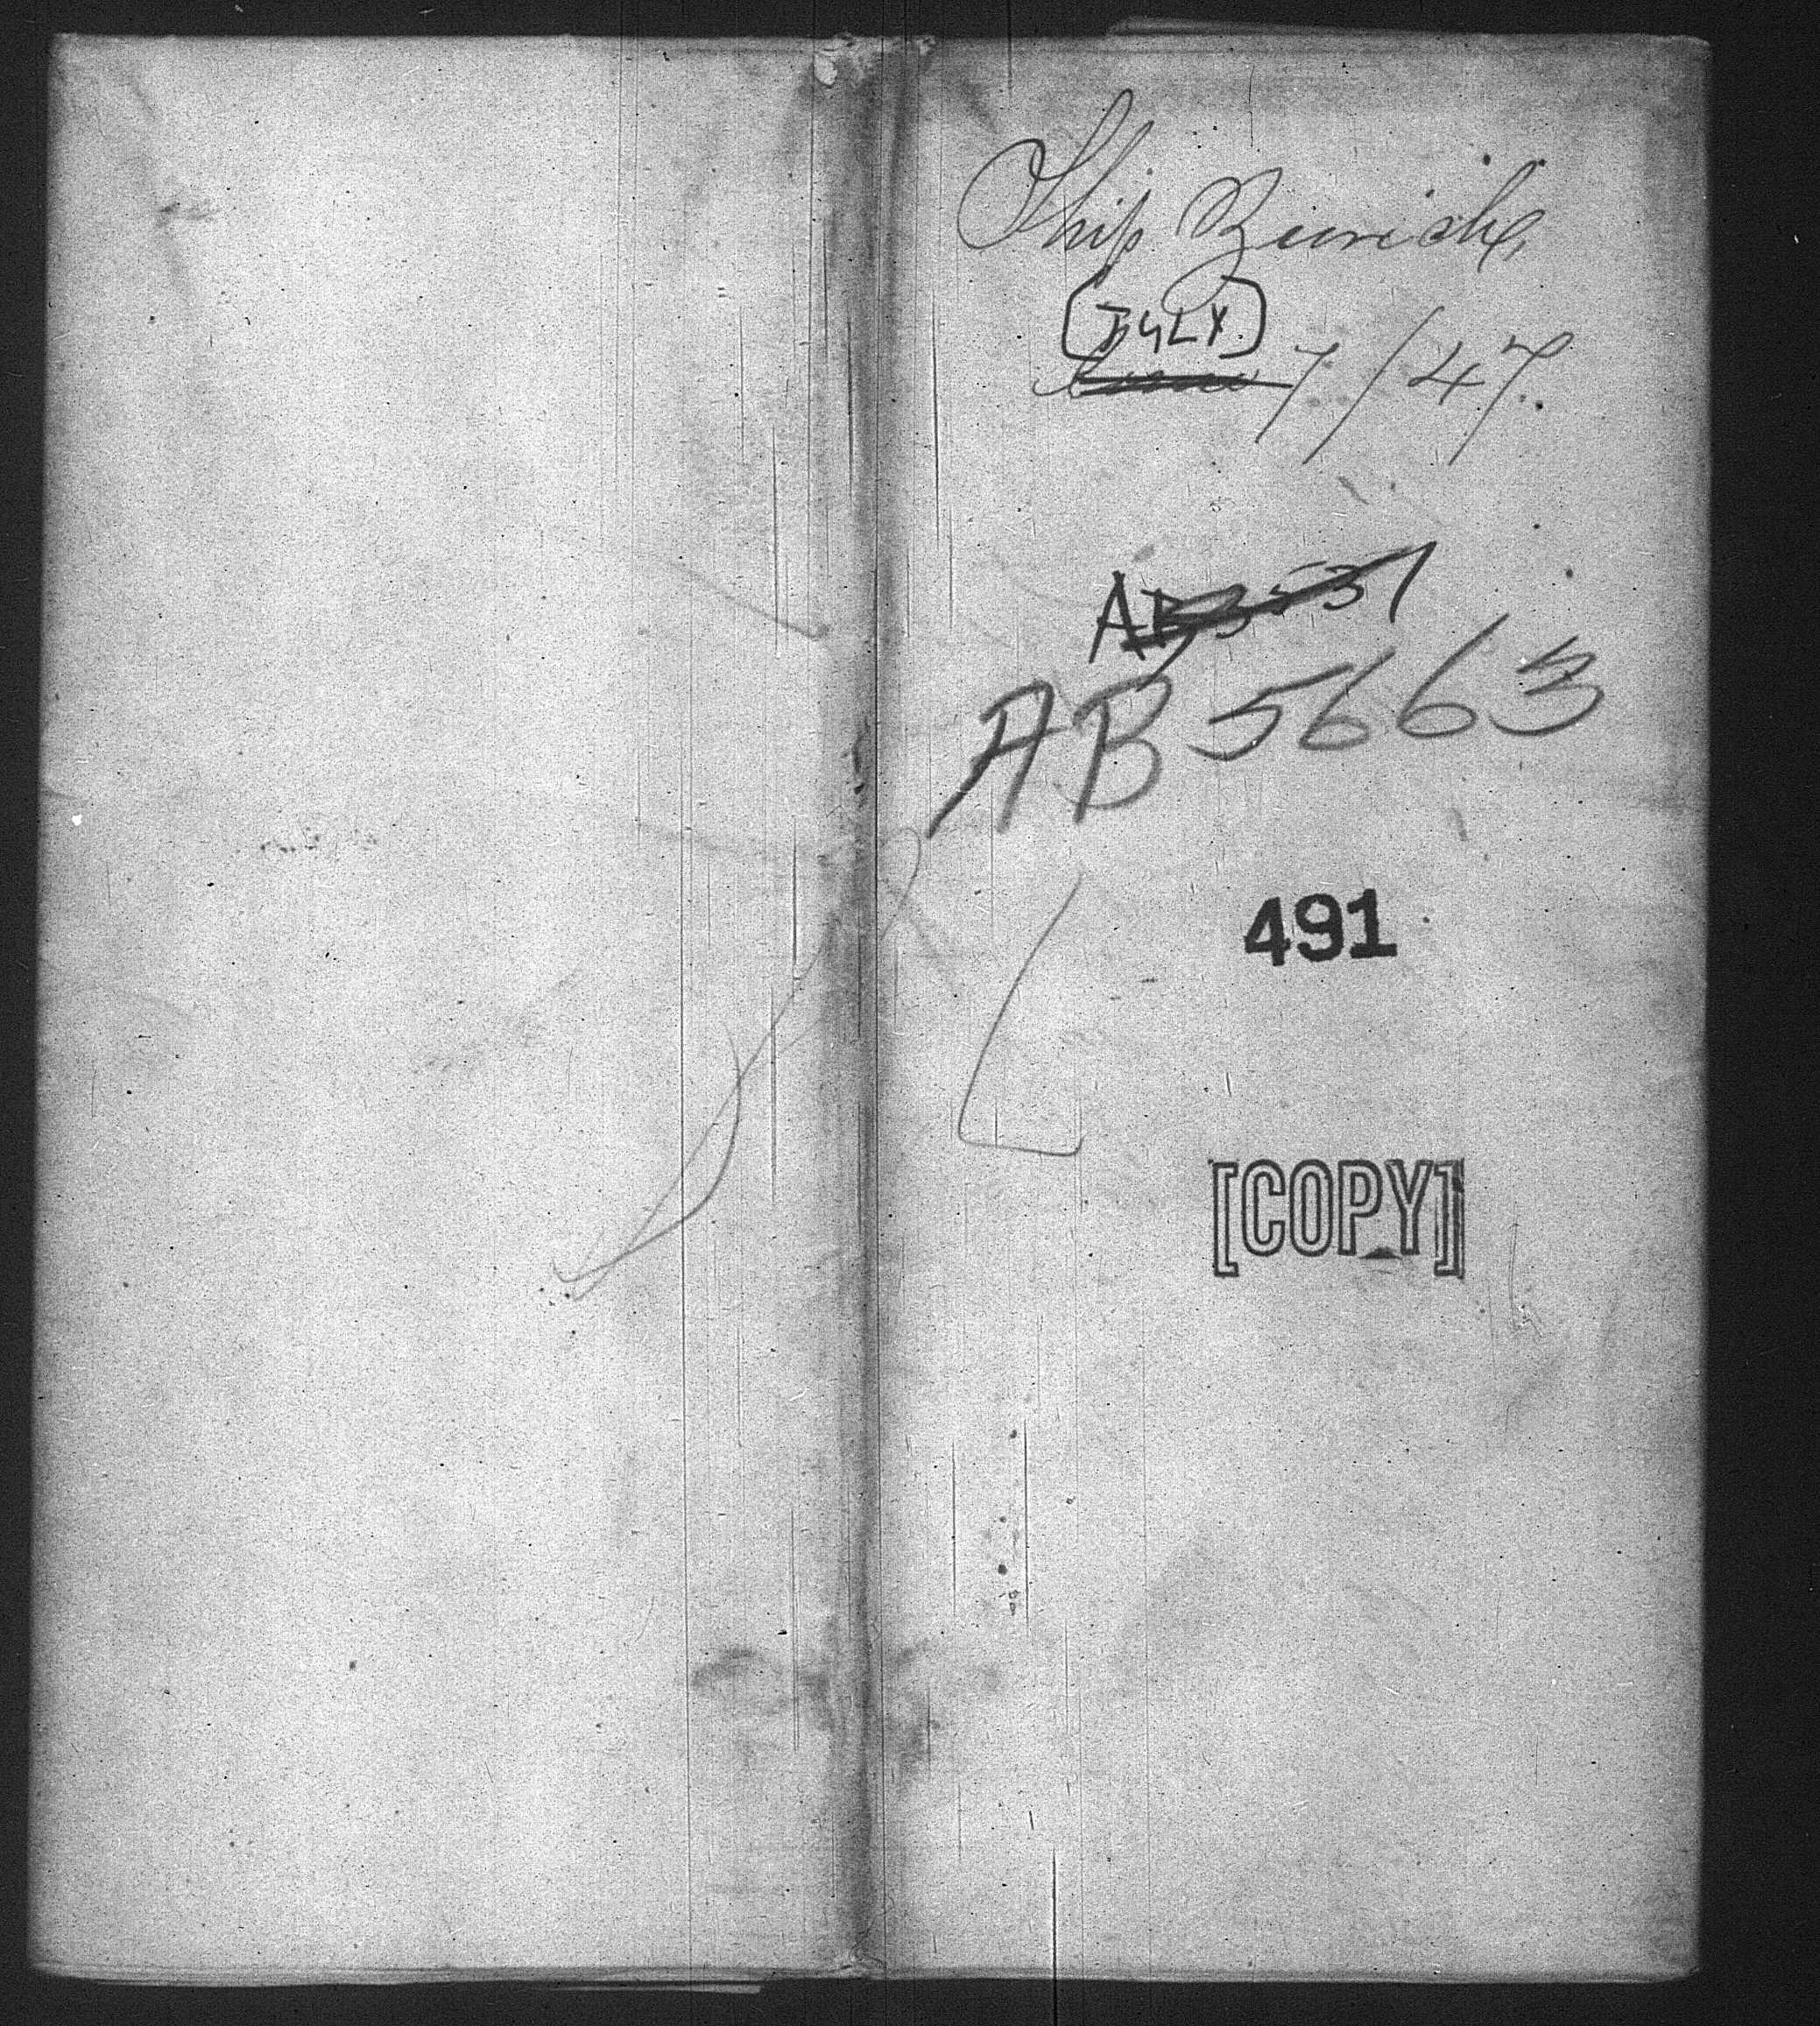 Ship Zurich,
[JULY]
7/47.
AB3537
AB5663
491
[COPY]